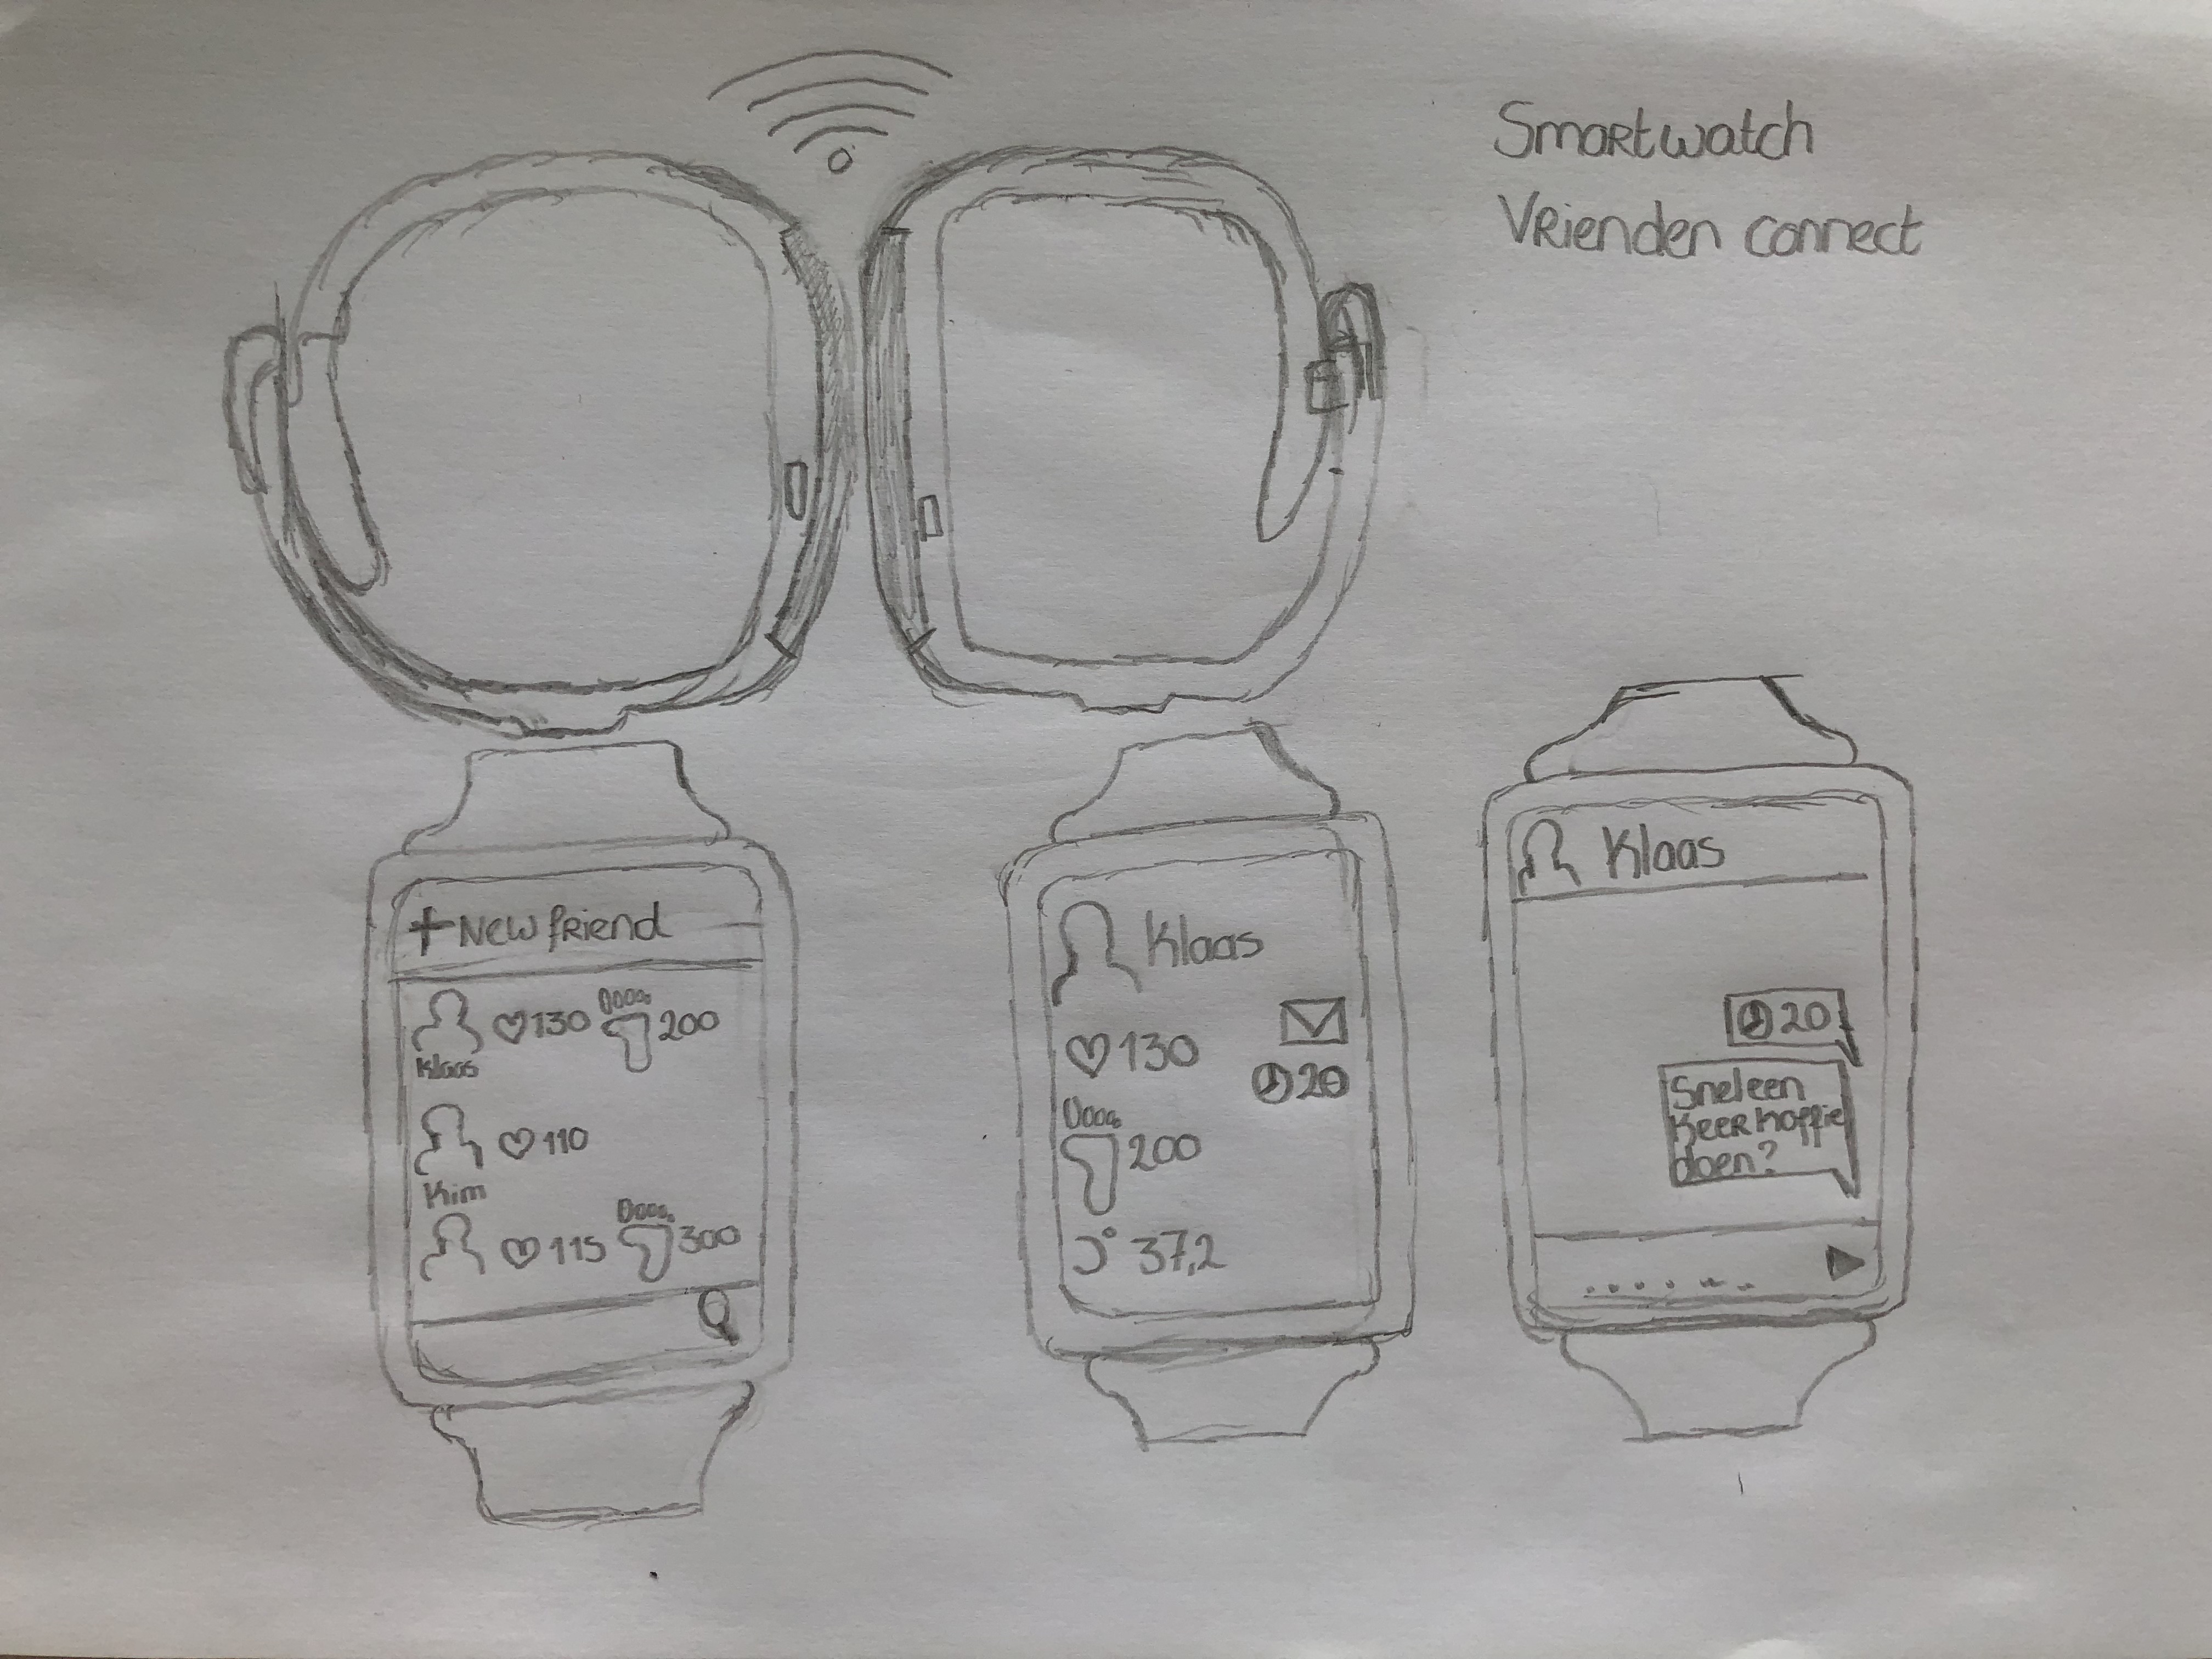 Smartwatch
Vrienden connect
+ New friend
130 200
Klaas
110
Kim
115 300
Klaas
130
20
200
37,2
Klaas
20
Snel een
Keer koffie
doen?